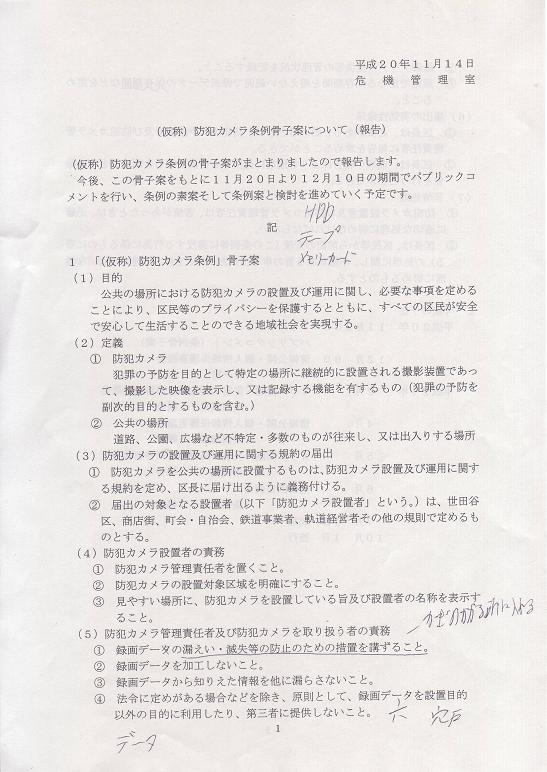 平成20年11月14日
危機管理室
(仮称)防犯カメラ条例骨子案について(報告)
(仮称)防犯カメラ条例の骨子案がまとまりましたので報告します。
今後、この骨子案をもとに11月20日より12月10日の期間でパブリックコ
メントを行い、条例の素案そして条例案と検討を進めていく予定です。
HDD
記
テープ
メモリーカード
1 「(仮称)防犯カメラ条例」骨子案
(1)目的
公共の場所における防犯カメラの設置及び運用に関し、必要な事項を定める
ことにより、区民等のプライバシーを保護するとともに、すべての区民が安全
で安心して生活することのできる地域社会を実現する。
(2)定義
① 防犯カメラ
犯罪の予防を目的として特定の場所に継続的に設置される撮影装置であっ
て、撮影した映像を表示し、又は記録する機能を有するもの(犯罪の予防を
副次的目的とするものを含む。)
② 公共の場所
道路、公園、広場など不特定・多数のものが往来し、又は出入りする場所
(3)防犯カメラの設置及び運用に関する規約の届出
① 防犯カメラを公共の場所に設置するものは、防犯カメラ設置及び運用に関す
る規約を定め、区長に届け出るように義務付ける。
② 届出の対象となる設置者(以下「防犯カメラ設置者」という。)は、世田谷
区、商店街、町会・自治会、鉄道事業者、軌道経営者その他の規則で定めるも
のとする。
(4)防犯カメラ設置者の責務
① 防犯カメラ管理責任者を置くこと。
② 防犯カメラの設置対象区域を明確にすること。
③ 見やすい場所に、防犯カメラを設置している旨及び設置者の名称を表示す
ること。
(5)防犯カメラ管理責任者及び防犯カメラを取り扱う者の責務
① 録画データの漏えい・滅失等の防止のための措置を講ずること。
② 録画データを加工しないこと。
③ 録画データから知りえた情報を他に漏らさないこと。
④ 法令に定めがある場合などを除き、原則として、録画データを設置目的
以外の目的に利用したり、第三者に提供しないこと。
1
データ